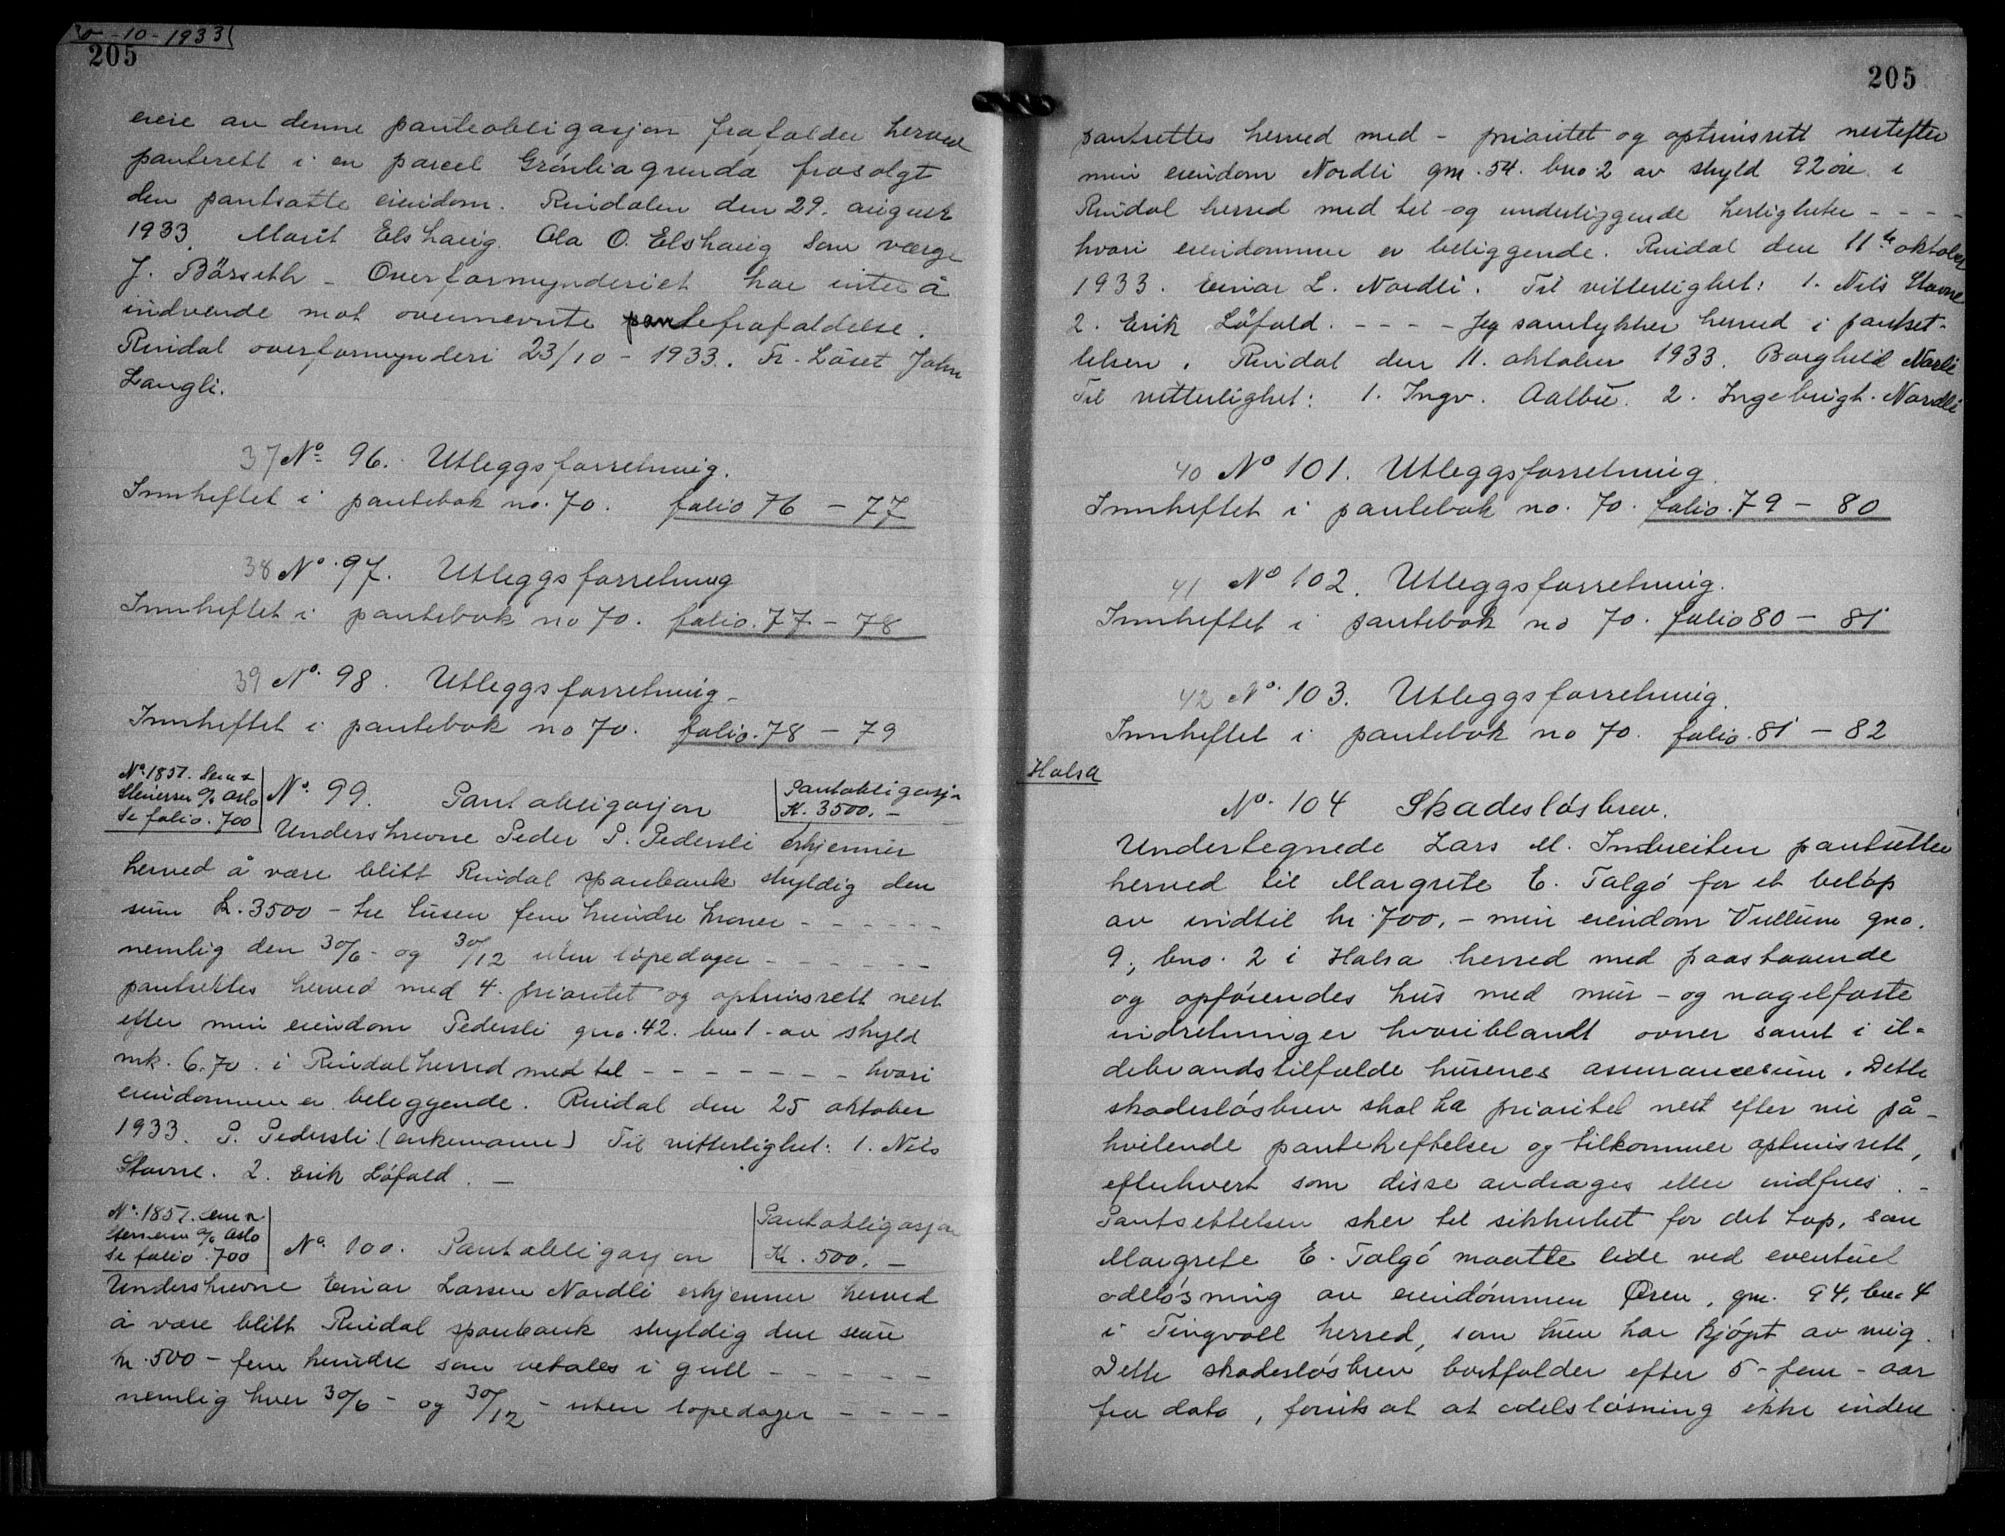 30-10-1933
205
eiere av denne panteobligasjon frafalder herved
panterett i en parcel Grönliagrenda frasolgt
den pantsatte eiendom. Rindalen den 29. august
1933. Marit Elshaug. Ola O. Elshaug Som værge
J. Börseth - Overformynderiet har intet å
indvende mot ovennevnte pantefrafaldelse.
Rindal overformynderi 23/10 - 1933. Tr. Löset John
Langli.
37 No 96. Utleggsforretning.
Innheftet i pantebok no. 70. folio 76 - 77
38 No. 97. Utleggsforretning
Innheftet i pantebok no 70. folio. 77 - 78
39 No. 98. Utleggsforretning -
Innheftet i pantebok no 70. folio. 78 - 79
No. 1851. Sem &
Stenersen a/s Oslo
Se folio. 700
No. 99. Pantobligasjon
Pantobligasjon
Kr. 3500. -
Underskrevne Peder P. Pedersli erkjenner
herved å være blitt Rindal sparebank skyldig den
sum kr. 3500 - tre tusen fem hundre kroner - - - - - -
nemlig den 30/6 - og 30/12 uten löpedager - - - - - -
pantsettes herved med 4. prioritet og optrinsrett nest
efter min eiendom Pedersli gno. 42. bno 1 - av skyld
mk. 6.70. i Rindal herred med til - - - - - - - hvori
eiendommen er beliggende. Rindal den 25 oktober
1933. P. Pedersli (enkemann) Til vitterlighet: 1. Nils
Stavne. 2. Erik Löfald. -
No. 1851. Sem &
Stenersen a/s Oslo
Se folio. 700
No. 100. Pantobligasjon
Pantobligasjon
Kr. 500. -
Underskrevne Einar Larsen Nordli erkjenner herved
å være blitt Rindal sparebank skyldig den sum
kr. 500 - fem hundre som betales i gull - - - - -
nemlig hver 30/6 - og 30/12 - uten löpedager - - - -
205
pantsettes herved med - prioritet og optrinsrett nestefter
min eiendom Nordli gno. 54. bno 2 av skyld 92 öre i
Rindal herred med til - og underliggende herligheter - - - -
hvori eiendommen er beliggende. Rindal den 11te oktober
1933. Einar L. Nordli. Til vitterlighet: 1. Nils Stavne
2. Erik Löfald. - - - - Jeg samtykker herved i pantset-
telsen. Rindal den 11. oktober 1933. Borghild Nordli
Til vitterlighet: 1. Ingv. Aalbu. 2. Ingebrigt. Nordli
40 No 101. Utleggsforretning.
Innheftet i pantebok no. 70. folio. 79 - 80
41 No 102. Utleggsforretning.
Innheftet i pantebok no 70. folio 80 - 81
42 No. 103. Utleggsforretning.
Innheftet i pantebok no 70. folio. 81 - 82
Halsa
No. 104 Skadeslösbrev.
Undertegnede Lars M. Indreiten pantsetter
herved til Margrete E. Talgö for et belöp
av indtil kr. 700. - min eiendom Vullum gno.
9, bno. 2 i Halsa herred med paastaaende
og opförendes hus med mur - og nagelfaste
indretninger hvoriblandt ovner samt i il-
debrandstilfælde husenes assurancesum. Dette
skadeslösbrev skal ha prioritet nest efter nu på-
hvilende panteheftelser og tilkommer optrinsrett,
efterhvert som disse avdrages eller indfries. -
Pantsettelsen sker til sikkerhet for det tap, som
Margrete E. Talgö maatte lide ved eventuel
odelösning av eiendommen Øren, gno. 94, bno. 4
i Tingvoll herred, som hun har kjöpt av mig.
Dette skadeslösbrev bortfalder efter 5 - fem - aar
fra dato, forutsat at odelslösning ikke inden